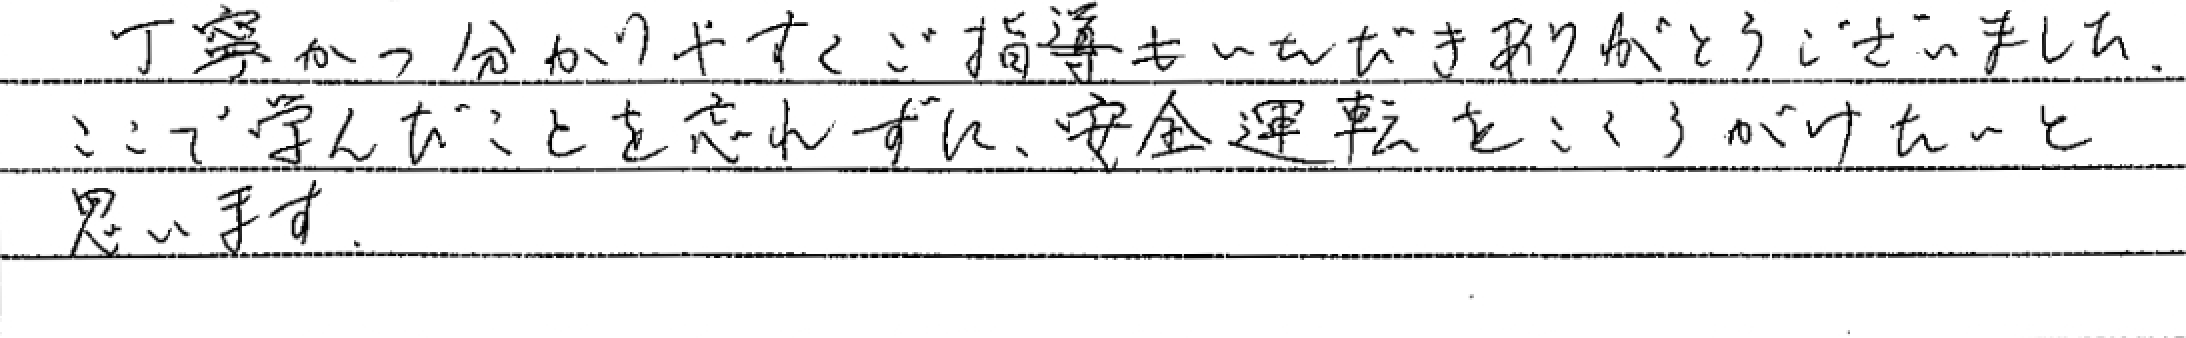 丁寧かつ分かりやすくご指導もいただきありがとうございました.
ここで学んだことを忘れずに、安全運転をこころがけたいと
思います.